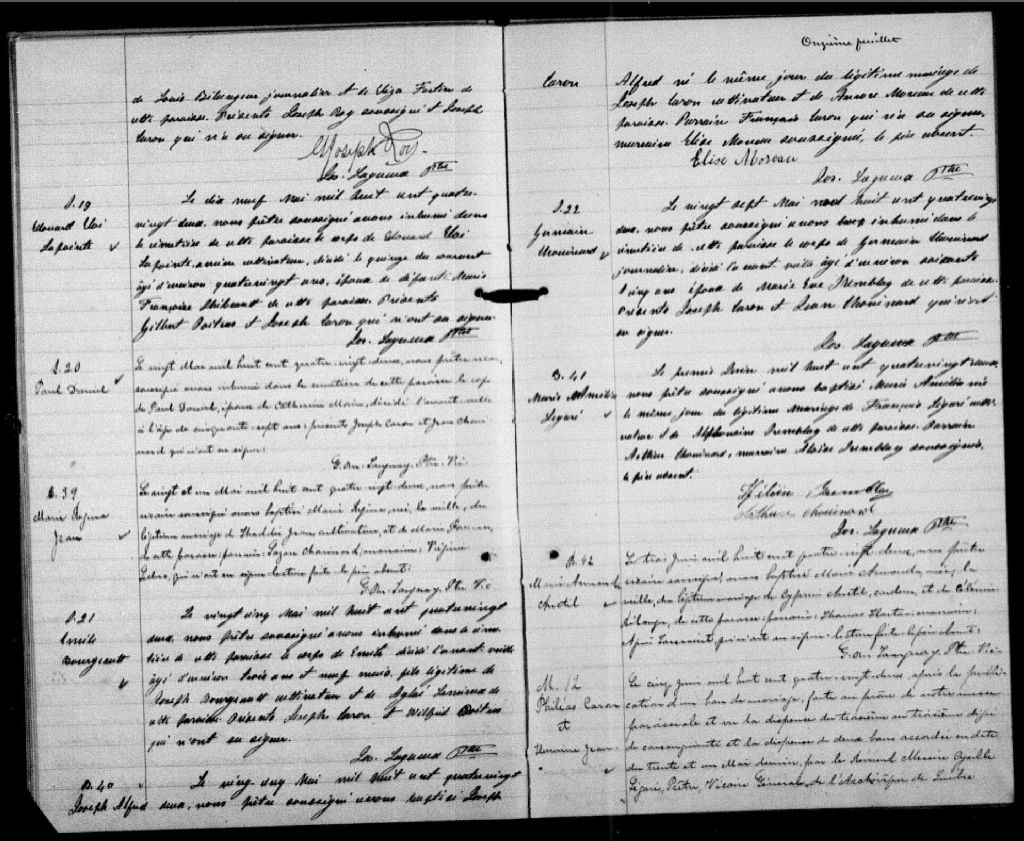 de Louis Bélanger journalier et de Eliza Fortin de
cette paroisse. Présents Joseph Roy soussigné et Joseph
Caron qui n'a su signer.
Joseph Roy
Jos. Lagueux Ptre
S.19
Edouard Eloi
Lapointe
Le dix neuf Mai mil huit cent quatre-
vingt deux, nous prêtre soussigné avons inhumé dans
le cimetière de cette paroisse le corps de Edouard Eloi
Lapointe, ancien cultivateur, décédé le quinze du courant
âgé d'environ quatrevingt ans, époux de défunte Marie
Françoise Thibeault de cette paroisse. Présents
Gilbert Poitras et Joseph Caron qui n'ont su signer.
Jos. Lagueux Ptre
S.20
Paul
Le vingt Mai mil huit cent quatre vingt deux, nous prêtre vic.
soussigné avons inhumé dans le cimetière de cette paroisse le corps
de Paul époux de Catherine Morin, décédé l'avant-veille
à l'âge de cinquante-sept ans; présents Joseph Caron et Jean Choui
nard qui n'ont su signer.
Tanguay Ptre Vic.
B.39
Marie Régina
Jean
Le vingt et un Mai mil huit cent quatre vingt deux, nous prêtre
vicaire soussigné avons baptisé Marie Régina, née la veille, du
légitime mariage de Thaddée Jean, cultivateur, et de Marie
de cette paroisse; parrain Lazare Chouinard, marraine Virginie
qui n'ont su signer lecture faite le père absent.
Tanguay Ptre Vic
S.21
Emile
Bourgeault
Le vingt cinq Mai mil huit cent quatrevingt
deux, nous prêtre soussigné avons inhumé dans le cime
tière de cette paroisse le corps de Emile décédé l'avant veille
âgé d'environ trois ans et neuf mois, fils légitime de
Joseph Bourgeault cultivateur et de Aglaé
cette paroisse. Présents Joseph Caron et Wilfrid Poitras
qui n'ont su signer.
Jos. Lagueux Ptre
B.40
Joseph Alfred
Le vingt cinq Mai mil huit cent quatrevingt
deux, nous prêtre soussigné avons baptisé Joseph
Onzième feuillet
Caron
Alfred né le même jour du légitime mariage de
Joseph Caron cultivateur et de Aurore Moreau de cette
paroisse. Parrain François Caron qui n'a su signer,
marraine Elise Moreau soussignée, le père absent.
Elise Moreau
Jos. Lagueux Ptre
S.22
Germain
Chouinard
Le vingt sept Mai mil huit cent quatrevingt
deux, nous prêtre soussigné avons inhumé dans le
cimetière de cette paroisse le corps de Germain Chouinard
journalier, décédé l'avant veille âgé d'environ soixante
cinq ans époux de Marie Eve Tremblay de cette paroisse.
Présents Joseph Caron et Jean Chouinard qui n'ont
su signer.
Jos. Lagueux Ptre
B.41
Marie Amélie
Légaré
Le premier Juin mil huit cent quatrevingt deux,
nous prêtre soussigné avons baptisé Marie Amélie née
le même jour du légitime mariage de François Légaré culti-
vateur et de Alphonsine Tremblay de cette paroisse. Parrain
Arthur Chouinard, marraine Tremblay soussignés,
le père absent.
Tremblay
Arthur Chouinard
Jos. Lagueux Ptre
B.42
Marie Amanda
Anctil
Le trois Juin mil huit cent quatre vingt deux, nous prêtre
vicaire soussigné, avons baptisé Marie Amanda, née la
veille, du légitime mariage de Cyprien Anctil, et de Catherine
Bélanger, de cette paroisse; parrain Thomas marraine
qui n'ont su signer lecture faite le père absent.
Tanguay Ptre Vic
M. 12
Philias Caron
et
Jean
Le cinq Juin mil huit cent quatre-vingt deux après la publi
cation d'un ban de mariage, faite au prône de notre messe
paroissiale et vu la dispense du troisième au troisième degré
de consanguinité et la dispense de deux bans accordée en date
du trente et un Mai dernier, par le Révérend Messire Cyrille
Légaré, Prêtre, Vicaire Général de l'Archevêque de Québec